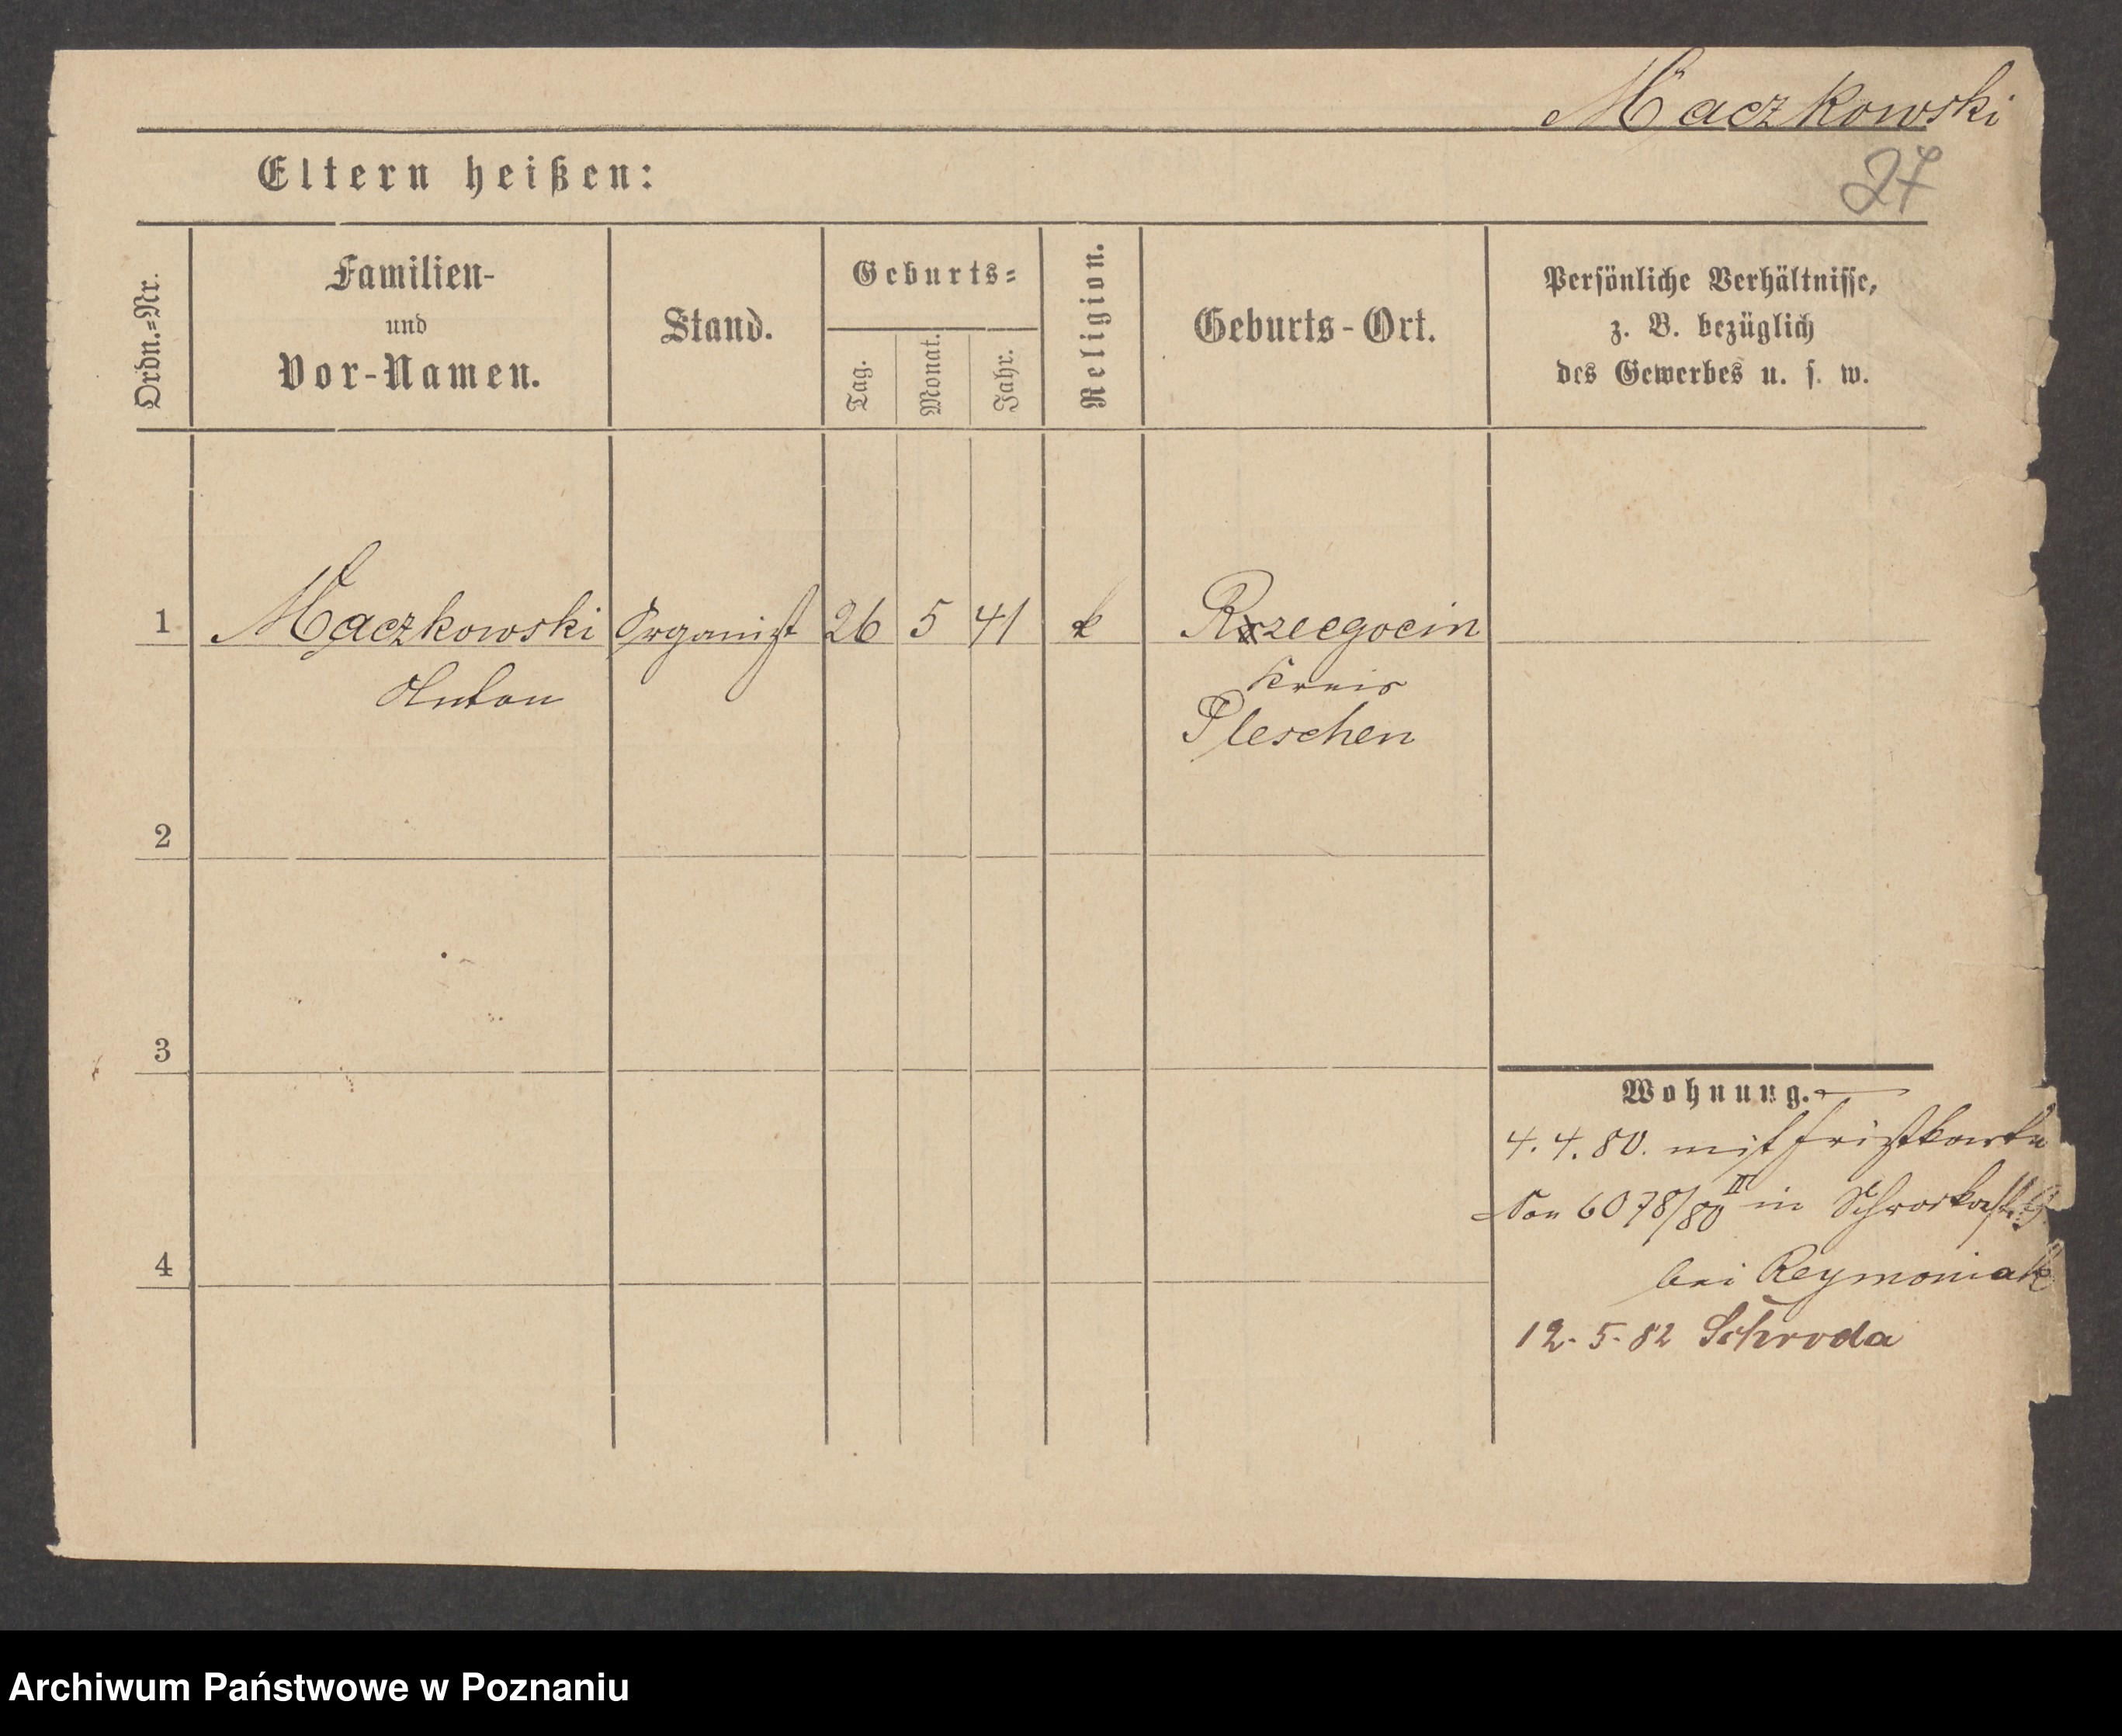 Maczkowski
27
Eltern heißen:
Ordn.=Nr.
Familien-
und
Vor-Namen.
Stand.
Geburts=
Tag.
Monat.
Jahr.
Religion.
Geburts-Ort.
Persönliche Verhältnisse,
z. B. bezüglich
des Gewerbes u. s. w.
1 Mączkowski Organist 26 5 41 k Rzegocin
Anton Kreis
Pleschen
2
3
Wohnung.
4.4.80. mit
6078/80 III in
4
bei Reymoniak
12-5-82 Schroda
Archiwum Państwowe w Poznaniu